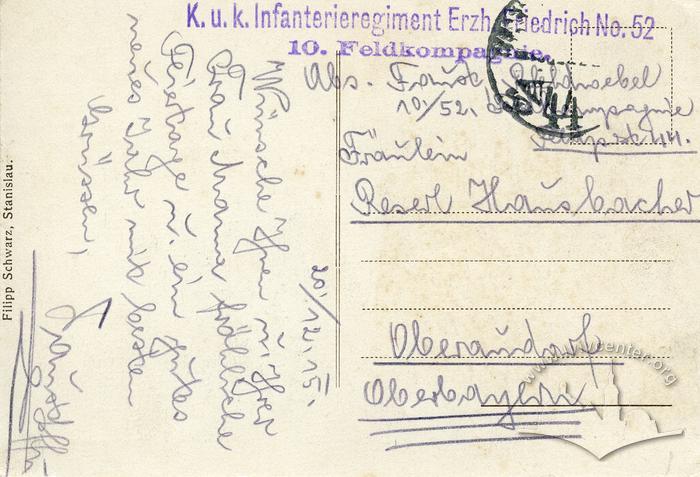 K. u. k. Infanterieregiment Erzh. Friedrich No. 52
10. Feldkompagnie.
Abs. Faust,
10./52. Feldkompagnie
Feldpost 44.
44
Fräulein
Reserl Hausbacher
Oberaudorf
Oberbayern
20./12. 15.
Wünsche Ihnen u. Ihrer
Frau Mama fröhliche
Feiertage u. ein gutes
neues Jahr mit besten
Grüssen,
Filipp Schwarz, Stanislau.
www.lvivcenter.org